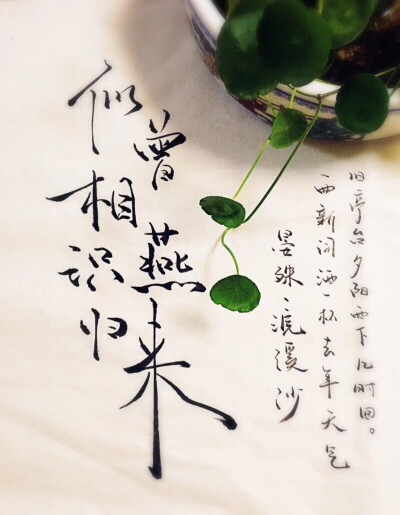 似相识归
曾燕来
一曲新词酒一杯去年天气
旧亭台夕阳西下几时回。
晏殊、浣溪沙